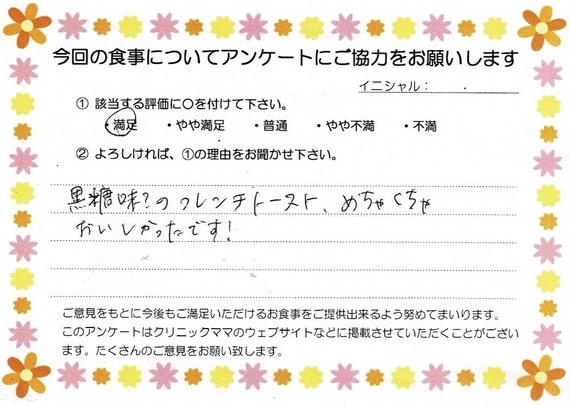 今回の食事についてアンケートにご協力をお願いします
イニシャル： .
① 該当する評価に〇を付けて下さい。
・満足 ・やや満足 ・普通 ・やや不満 ・不満
② よろしければ、①の理由をお聞かせ下さい。
黒糖味?のフレンチトースト、めちゃくちゃ
おいしかったです!
ご意見をもとに今後もご満足いただけるお食事をご提供出来るよう努めてまいります。
このアンケートはクリニックママのウェブサイトなどに掲載させていただくことがござい
ます。たくさんのご意見をお願い致します。